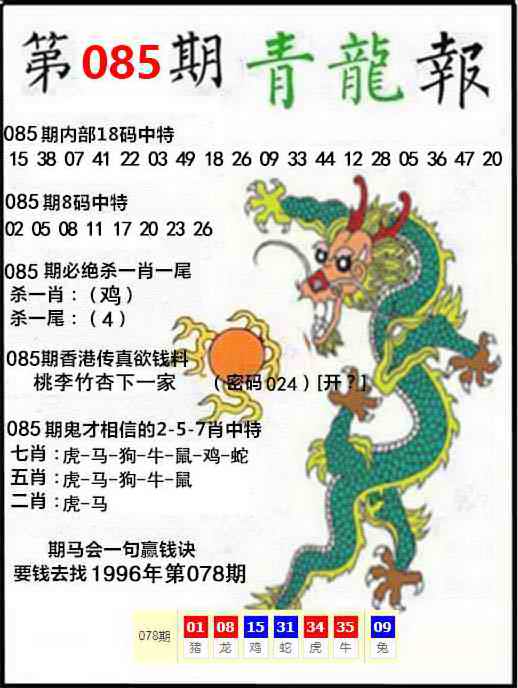 第085期青龍報
085期内部18码中特
15 38 07 41 22 03 49 18 26 09 33 44 12 28 05 36 47 20
085期8码中特
02 05 08 11 17 20 23 26
085 期必绝杀一肖一尾
杀一肖：（鸡）
杀一尾：（4）
085期香港传真欲钱料
桃李竹杏下一家 （密码024）[开？]
085期鬼才相信的2-5-7肖中特
七肖：虎-马-狗-牛-鼠-鸡-蛇
五肖：虎-马-狗-牛-鼠
二肖：虎-马
期马会一句赢钱诀
要钱去找1996年第078期
078期 01 08 15 31 34 35 09
猪 龙 鸡 蛇 虎 牛 兔